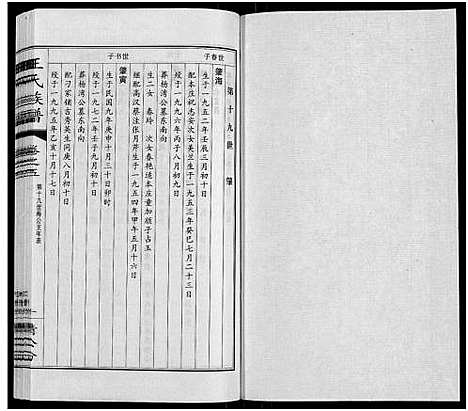 第十九世 肇
世春子
肇海
生于一九五二年壬辰三月初十日
配本庄祝志安次女美兰生于一九五三年癸巳七月二十三日
殁于一九九六年丙子八月初九日
葬杨湾公墓东南向
生二女 春玲 次女春艳述本庄童加顺子占玉
继配高汉蔡注张月芹生于一九五四年甲午五月十六日
世书子
肇寅
生于民国九年庚申十月三十日卯时
殁于一九七二年壬子九月初十日
葬杨湾公墓东南向
配刁家铺古秀英生同庚八月初十日
殁于一九九五年乙亥十月十七日
王氏族谱
卷之五
第十九世海公支年表